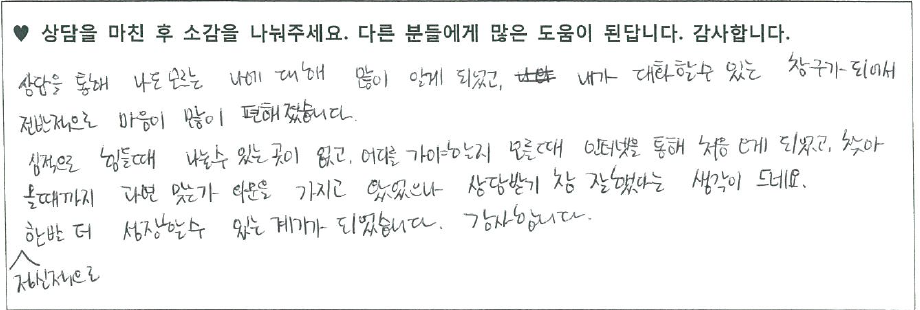 ♥ 상담을 마친 후 소감을 나눠주세요. 다른 분들에게 많은 도움이 된답니다. 감사합니다.
상담을 통해 나도 모르는 나에 대해 많이 알게 되었고, 내가 대화할수 있는 창구가 되어서
전반적으로 마음이 많이 편해졌습니다.
심적으로 힘들때 나눌수 있는 곳이 없고, 어디를 가야하는지 모를때 인터넷을 통해 처음 오게 되었고, 찾아
올때까지 과연 맞는가 의문을 가지고 왔었으나 상담받기 참 잘했다는 생각이 드네요.
한발 더 성장할수 있는 계기가 되었습니다. 감사합니다.
정신적으로